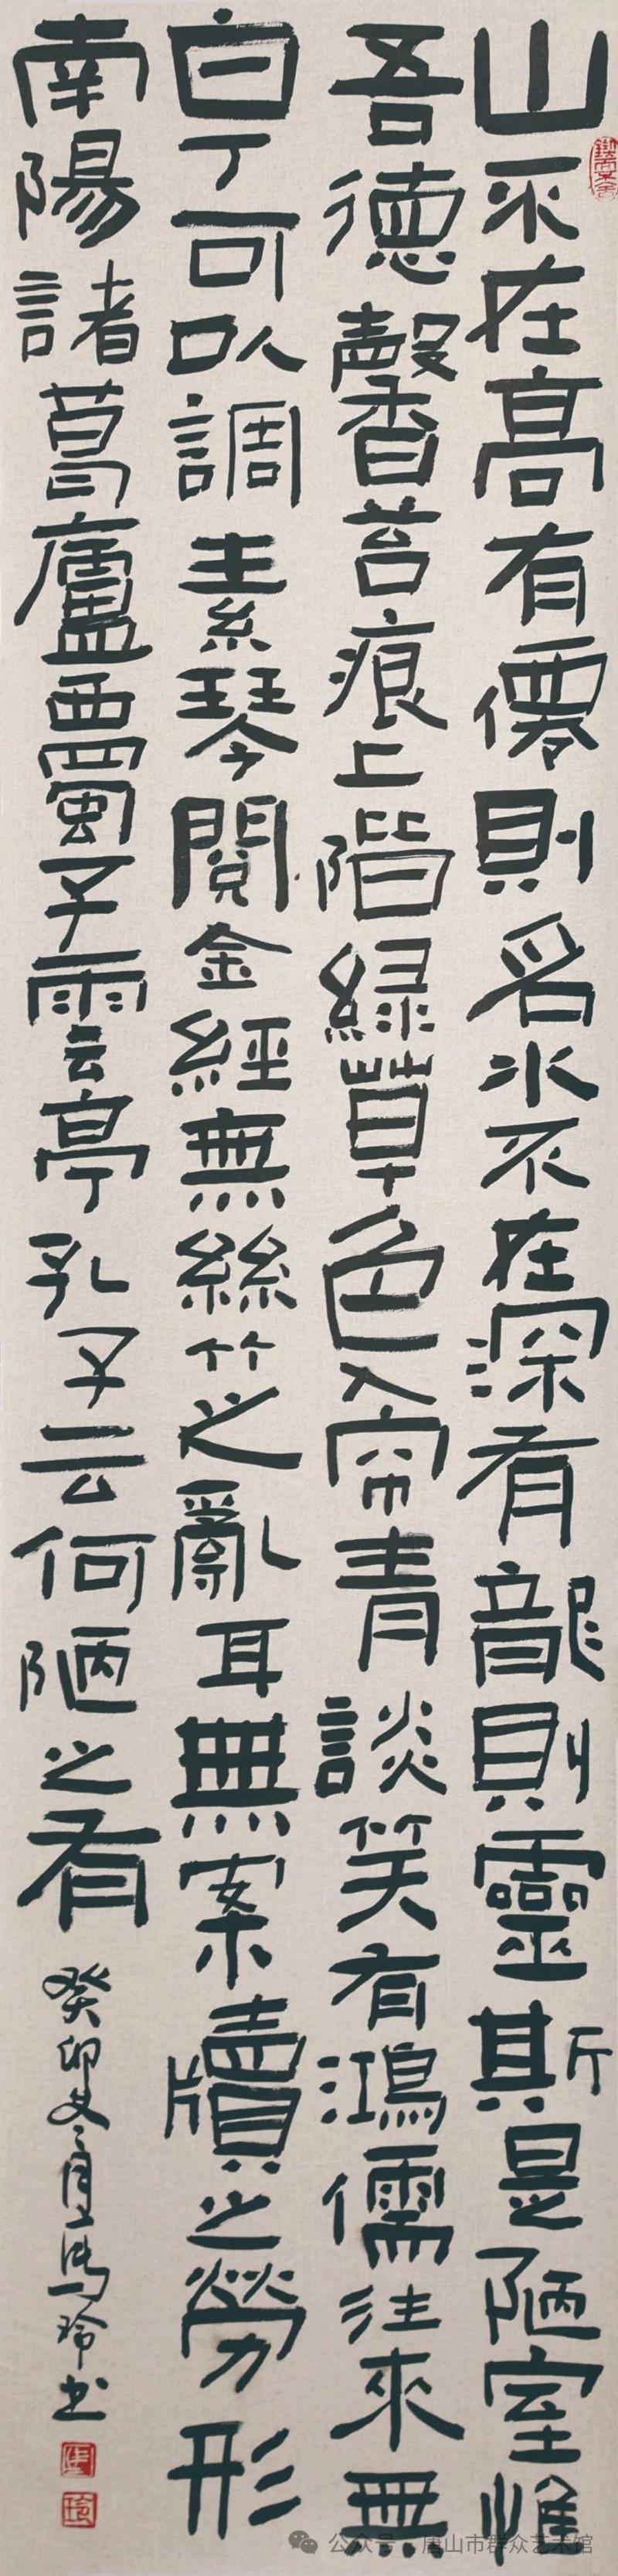 山不在高有僊則名水不在深有龍則靈斯是陋室惟
吾德馨苔痕上階綠草色入帘青談笑有鴻儒往來無
白丁可以調素琴閱金經無絲竹之亂耳無案牘之勞形
南陽諸葛廬西蜀子雲亭孔子云何陋之有
癸卯 馬玲书
公众号 · 唐山市群众艺术馆